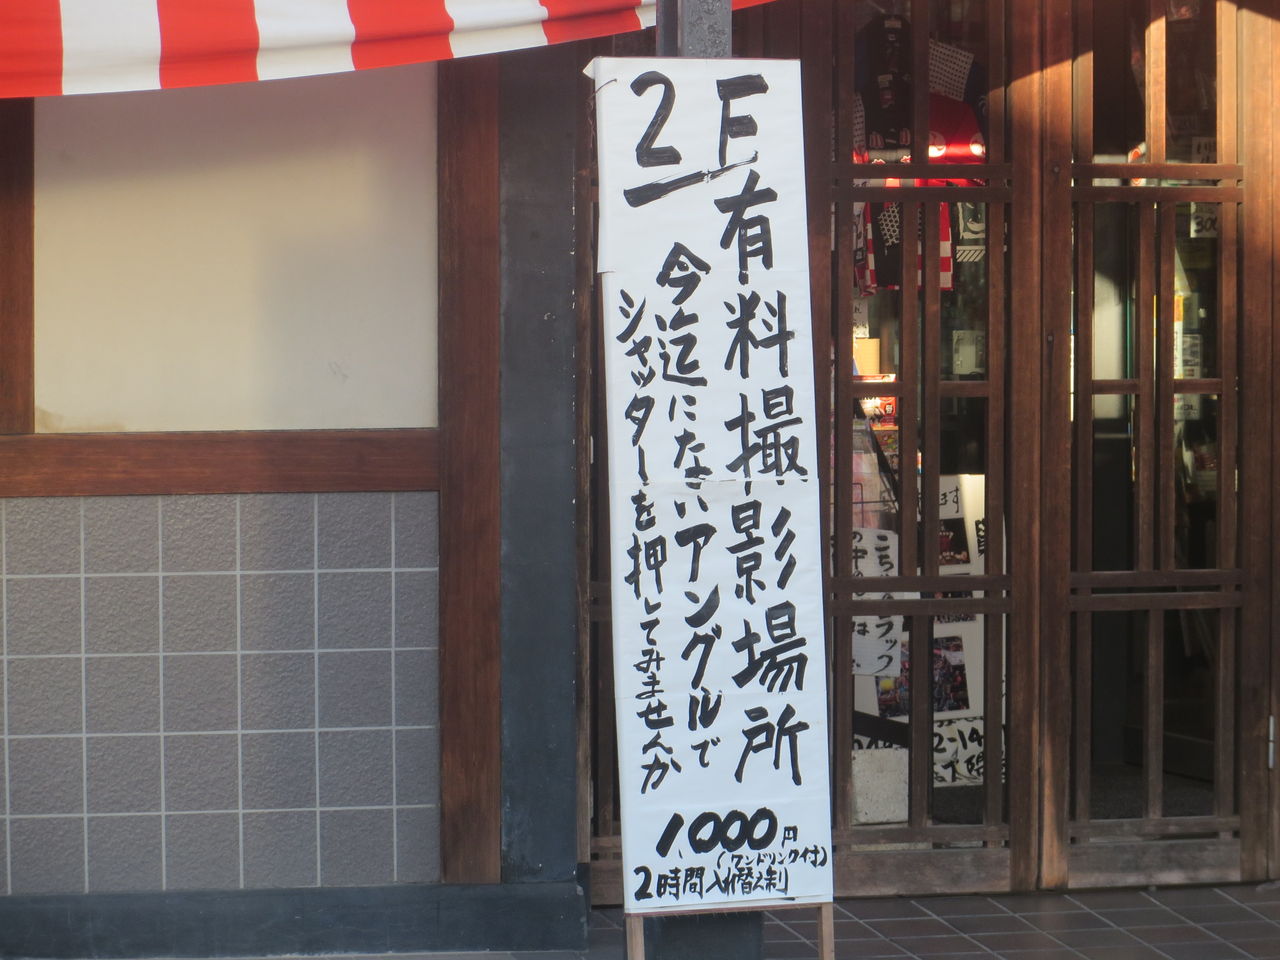 2F
有料撮影場所
今迄にないアングルで
シャッターを押してみませんか
1,000円
(ワンドリンク付)
2時間入れ替え制
300
ます